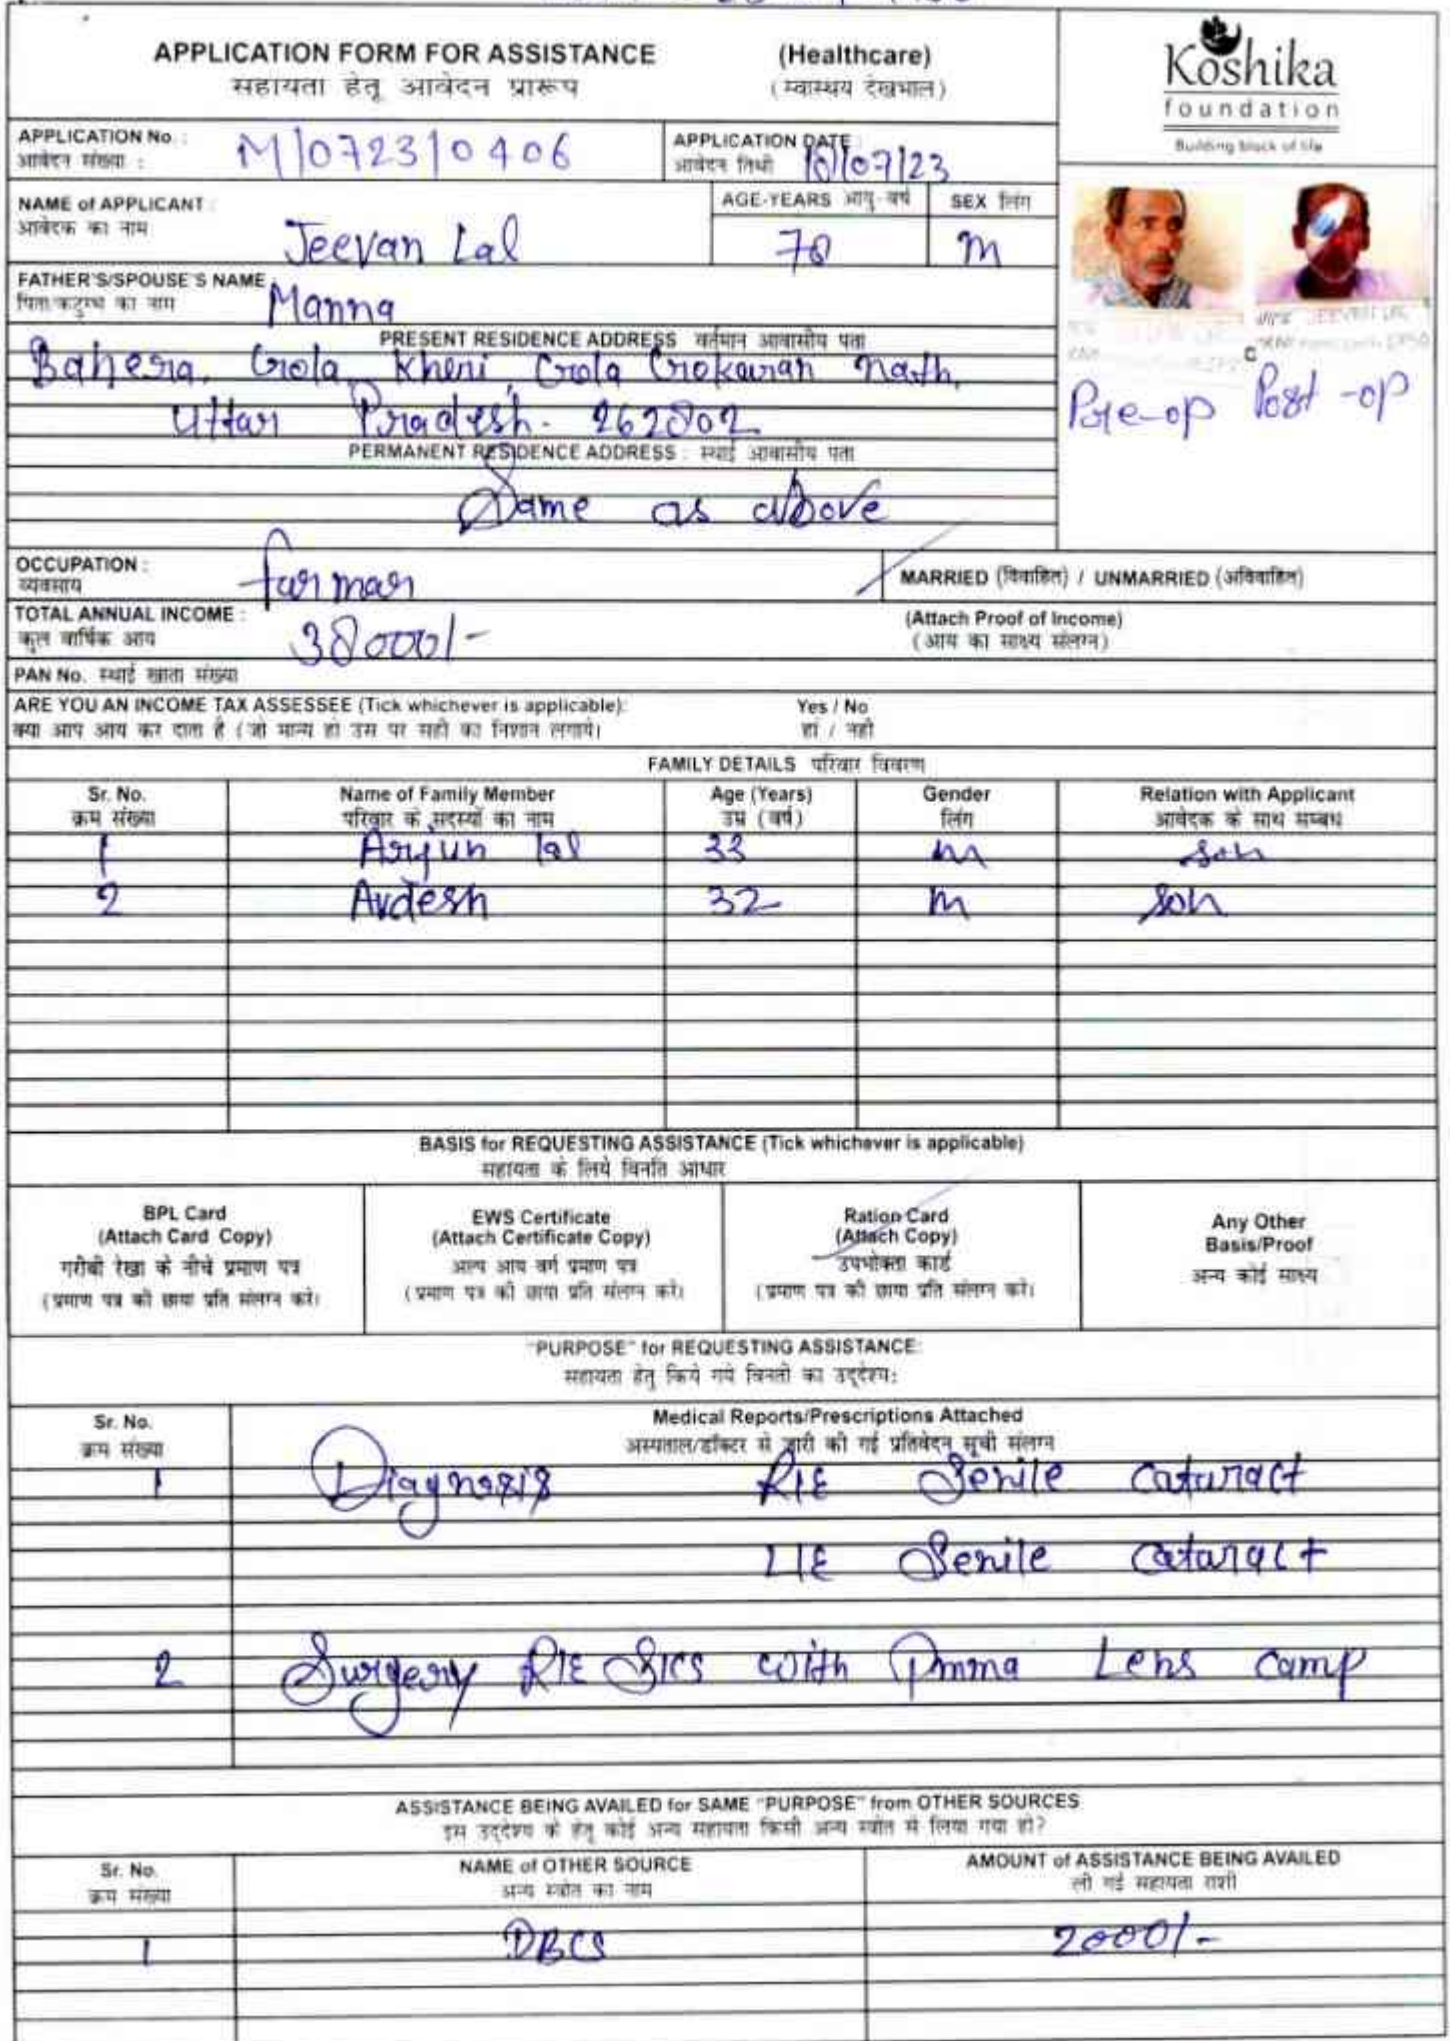 APPLICATION FORM FOR ASSISTANCE (Healthcare)
सहायता हेतू आवेदन प्रारूप (स्वास्थय देखभाल)
Koshika
foundation
Building block of life
APPLICATION No. : M/0723/0406
आवेदन संख्या :
APPLICATION DATE : 10/07/23
आवेदन तिथी
NAME of APPLICANT : Jeevan Lal
आवेदक का नाम
AGE-YEARS आयु-वर्ष
SEX लिंग
M
FATHER'S/SPOUSE'S NAME : Manna
पिता/कटुम्ब का नाम
PRESENT RESIDENCE ADDRESS वर्तमान आवासीय पता
Bahera, Gola Kheri, Gola Gokaran nath,
Uttar Pradesh. 262802
Pre-op Post-op
PERMANENT RESIDENCE ADDRESS : स्थाई आवासीय पता
Same as above
OCCUPATION : farmar
व्यवसाय
MARRIED (विवाहित) / UNMARRIED (अविवाहित)
TOTAL ANNUAL INCOME : 38000/-
कुल वार्षिक आय
(Attach Proof of Income)
(आय का साक्ष्य संलग्न)
PAN No. स्थाई खाता संख्या
ARE YOU AN INCOME TAX ASSESSEE (Tick whichever is applicable): Yes / No
क्या आप आय कर दाता है (जो मान्य हो उस पर सही का निशान लगाये। हां / नही
FAMILY DETAILS परिवार विवरण
Sr. No. Name of Family Member Age (Years) Gender Relation with Applicant
क्रम संख्या परिवार के सदस्यों का नाम उम्र (वर्ष) लिंग आवेदक के साथ सम्बध
1 Arjun lal 33 m son
2 Avdesh 32 m son
BASIS for REQUESTING ASSISTANCE (Tick whichever is applicable)
सहायता के लिये विनति आधार
BPL Card
(Attach Card Copy)
गरीबी रेखा के नीचे प्रमाण पत्र
(प्रमाण पत्र की छाया प्रति संलग्न करे।
EWS Certificate
(Attach Certificate Copy)
अल्प आय वर्ग प्रमाण पत्र
(प्रमाण पत्र की छाया प्रति संलग्न करे।
Ration Card
(Attach Copy)
उपभोक्ता कार्ड
(प्रमाण पत्र की छाया प्रति संलग्न करे।
Any Other
Basis/Proof
अन्य कोई साक्ष्य
"PURPOSE" for REQUESTING ASSISTANCE:
सहायता हेतु किये गये विनती का उद्देश्य:
Sr. No. Medical Reports/Prescriptions Attached
क्रम संख्या अस्पताल/डॉक्टर से जारी की गई प्रतिवेदन सूची संलग्न
1 Diagnosis R/E Senile cataract
L/E Senile cataract
2 Surgery R/E SICS with Pmma Lens camp
ASSISTANCE BEING AVAILED for SAME "PURPOSE" from OTHER SOURCES
इस उद्देश्य के हेतु कोई अन्य सहायता किसी अन्य स्त्रोत से लिया गया हो?
Sr. No. NAME of OTHER SOURCE AMOUNT of ASSISTANCE BEING AVAILED
क्रम संख्या अन्य स्त्रोत का नाम ली गई सहायता राशी
1 DBCS 2000/-